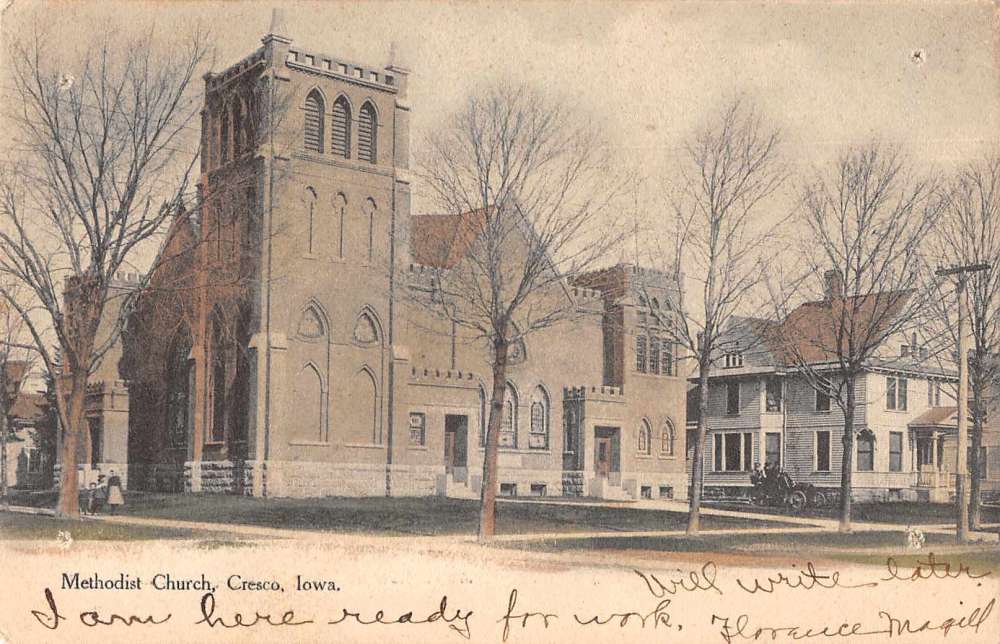 Methodist Church, Cresco, Iowa.
Will write later
I am here ready for work. Florence Magill